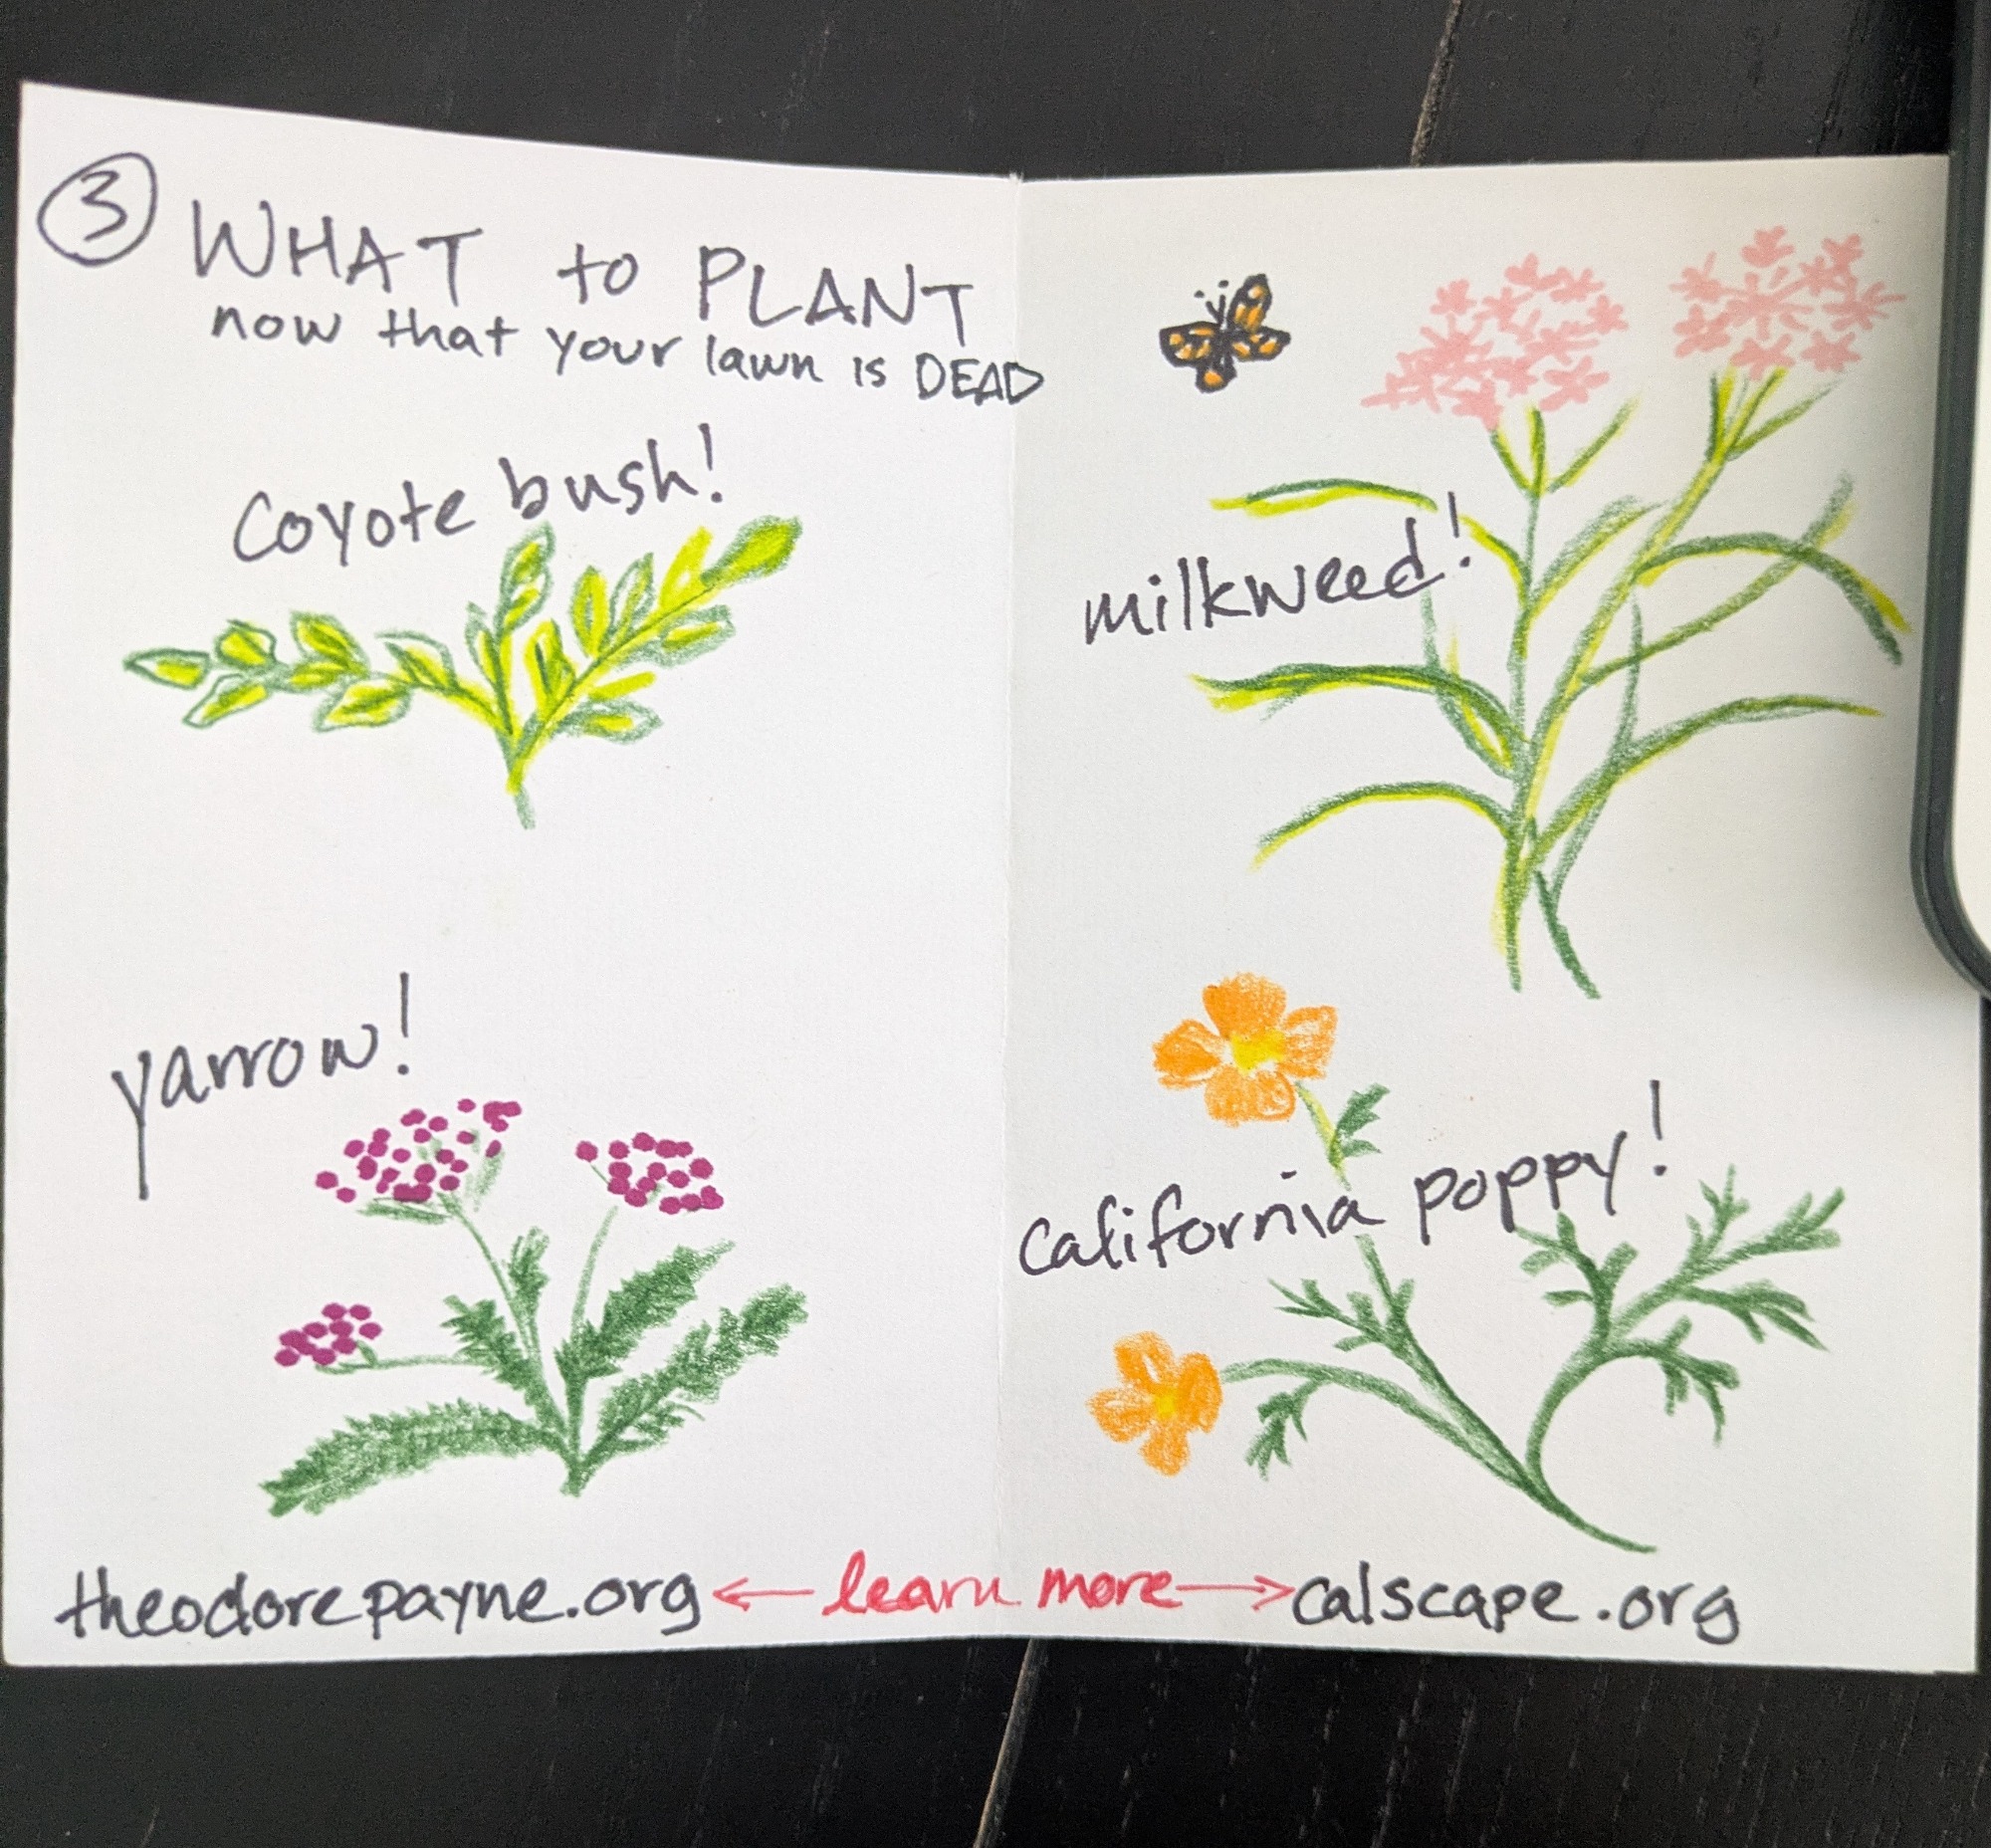 3 WHAT to PLANT
now that your lawn is DEAD
Coyote bush!
yarrow!
milkweed!
California poppy!
theodorepayne.org ← learn more → calscape.org